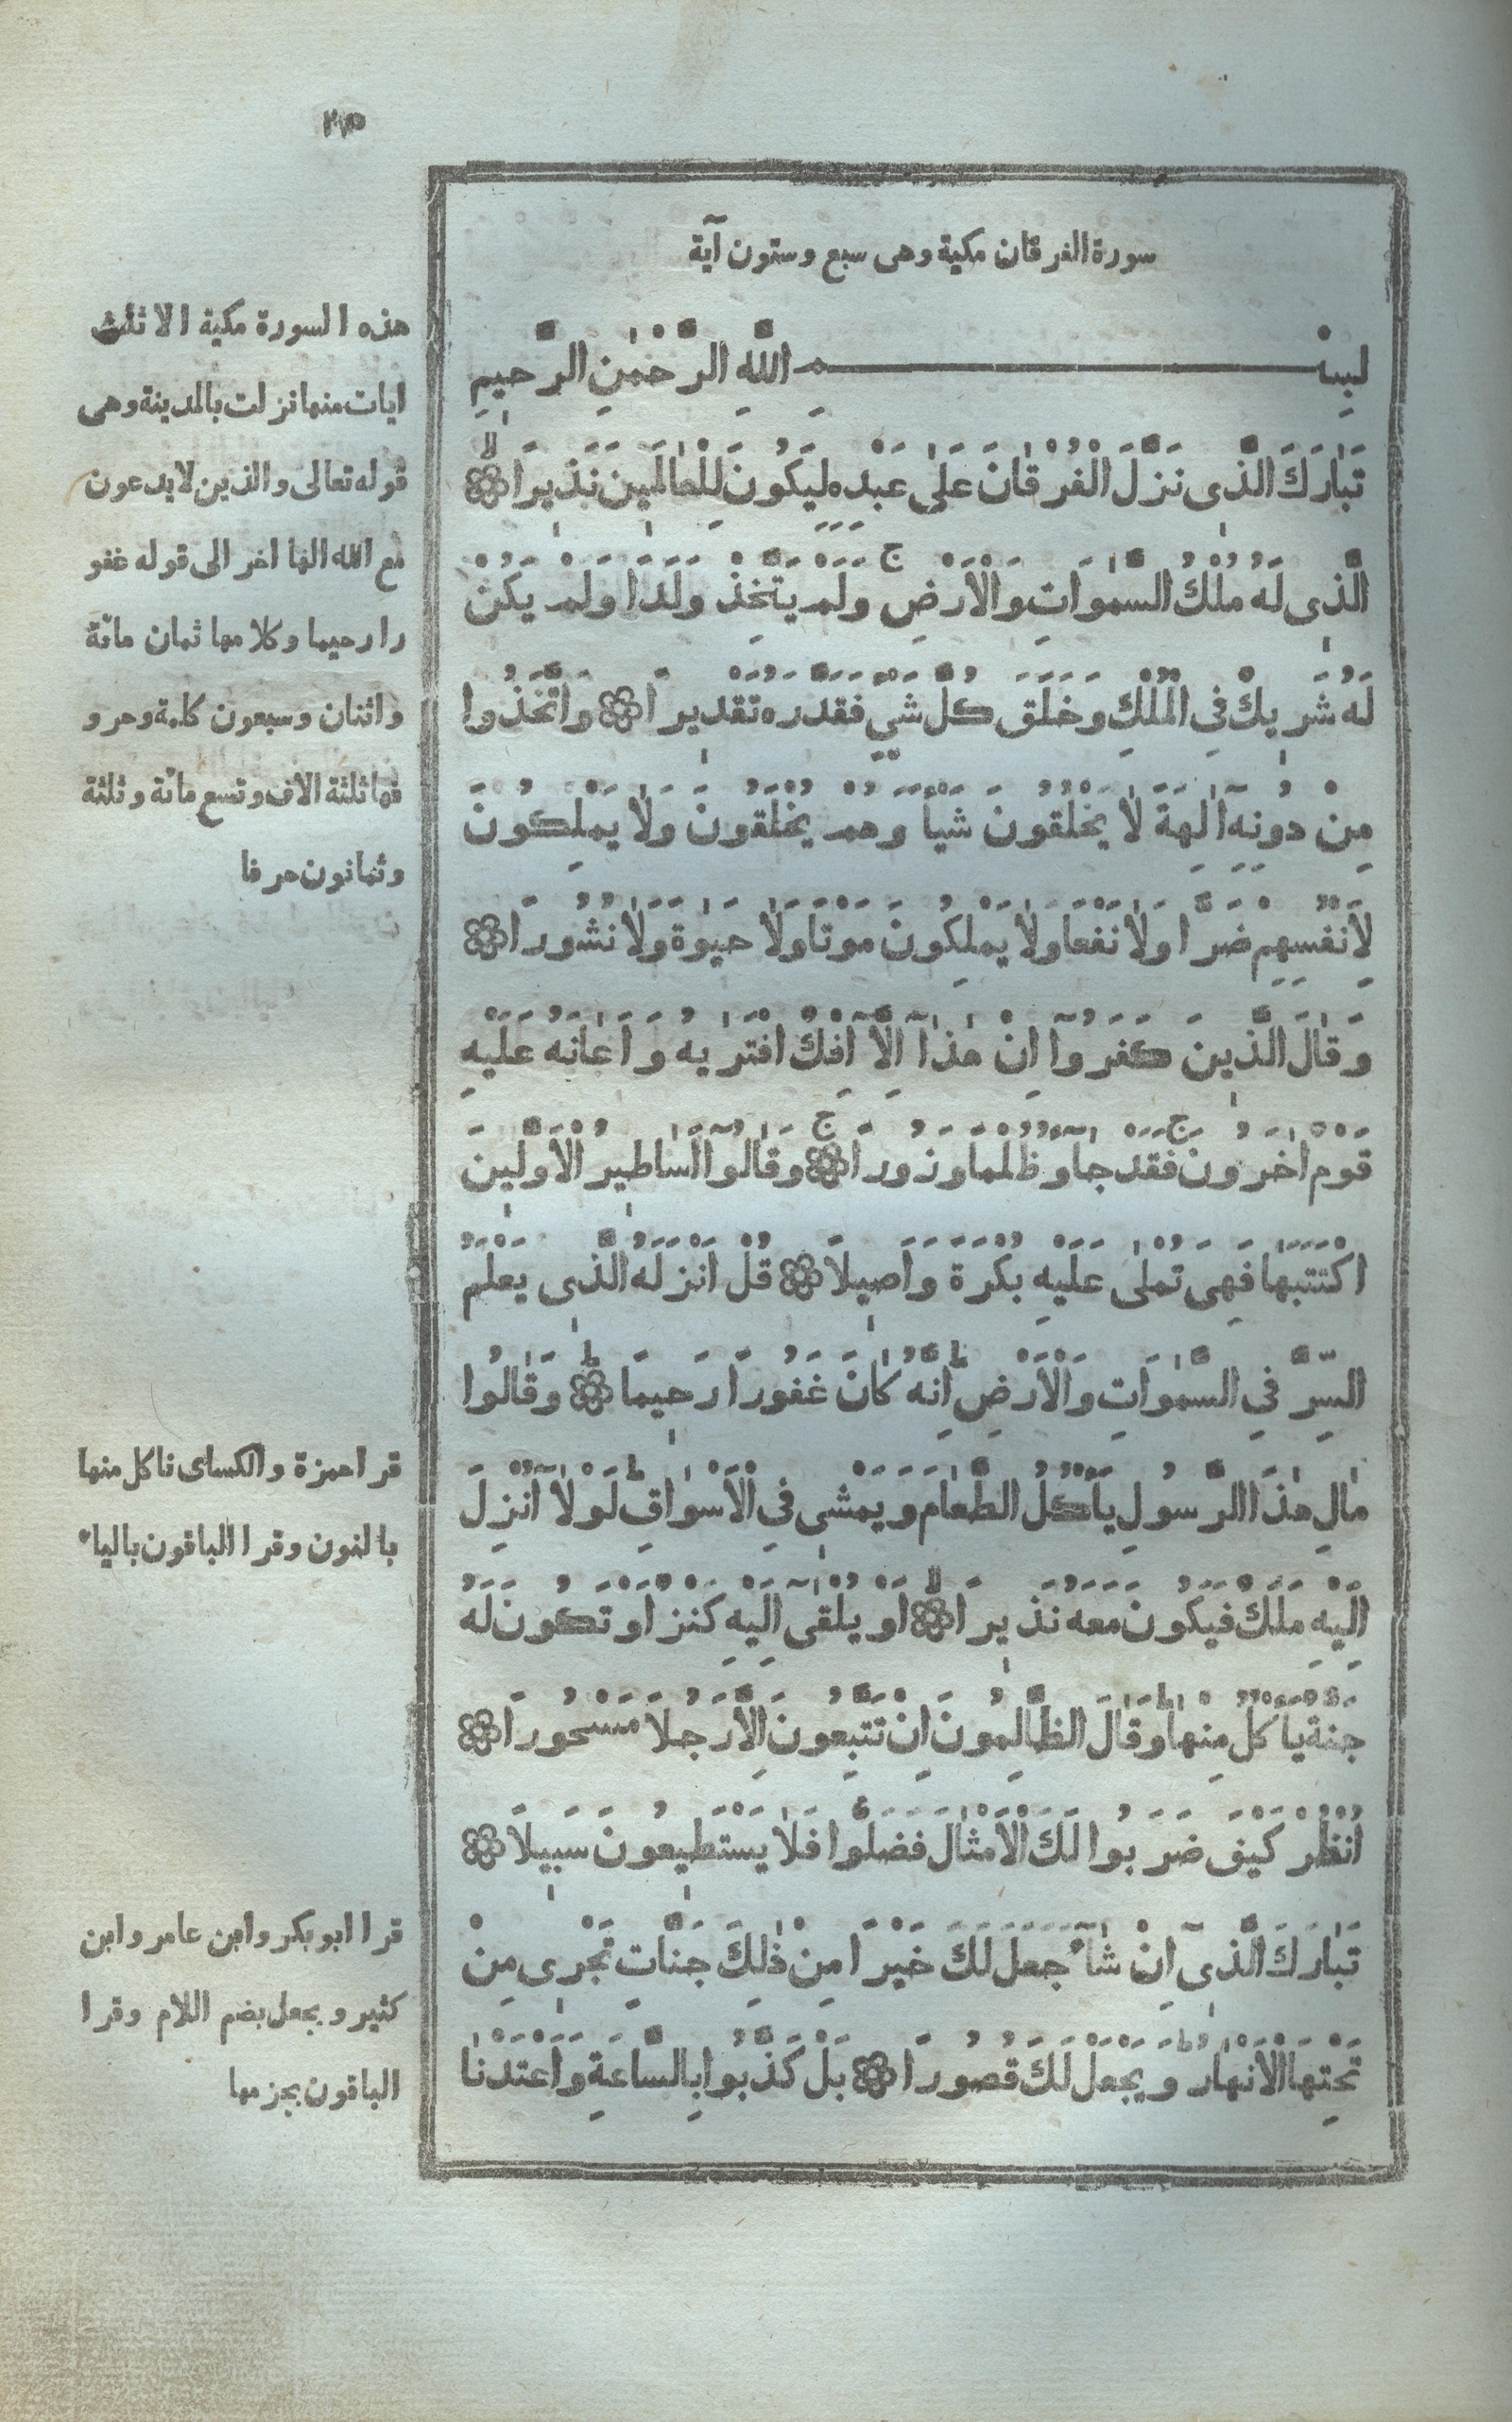 سورة الفرقان مكية وهى سبع وستون آية
بِسْمِ اللَّهِ الرَّحْمٰنِ الرَّحِيمِ
تَبٰارَكَ الَّذِى نَزَّلَ الْفُرْقٰانَ عَلٰى عَبْدِهِ لِيَكُونَ لِلْعٰالَمِينَ نَذِيرًا
الَّذِى لَهُ مُلْكُ السَّمٰوَاتِ وَالْأَرْضِ ج وَلَمْ يَتَّخِذْ وَلَدًا وَلَمْ يَكُنْ
لَهُ شَرِيكٌ فِى الْمُلْكِ وَخَلَقَ كُلَّ شَىْءٍ فَقَدَّرَهُ تَقْدِيرًا وَاتَّخَذُوا
مِنْ دُونِهِ آلِهَةً لٰا يَخْلُقُونَ شَيْأً وَهُمْ يُخْلَقُونَ وَلٰا يَمْلِكُونَ
لِأَنْفُسِهِمْ ضَرًّا وَلٰا نَفْعًا وَلٰا يَمْلِكُونَ مَوْتًا وَلٰا حَيٰوةً وَلٰا نُشُورًا
وَقٰالَ الَّذِينَ كَفَرُوآ اِنْ هٰذٰآ اِلَّآ اِفْكٌ افْتَرٰيهُ وَأَعٰانَهُ عَلَيْهِ
قَوْمٌ اٰخَرُونَ ج فَقَدْ جٰآؤُ ظُلْمًا وَزُورًا ج وَقٰالُوآ اَسٰاطِيرُ الْأَوَّلِينَ
اكْتَتَبَهٰا فَهِىَ تُمْلٰى عَلَيْهِ بُكْرَةً وَأَصِيلًا قُلْ اَنْزَلَهُ الَّذِى يَعْلَمُ
السِّرَّ فِى السَّمٰوَاتِ وَالْأَرْضِ ط اِنَّهُ كٰانَ غَفُورًا رَحِيمًا ط وَقٰالُوا
مٰالِ هٰذَا الرَّسُولِ يَأْكُلُ الطَّعٰامَ وَيَمْشِى فِى الْأَسْوٰاقِ ط لَوْلٰآ اُنْزِلَ
اِلَيْهِ مَلَكٌ فَيَكُونَ مَعَهُ نَذِيرًا اَوْ يُلْقٰىٓ اِلَيْهِ كَنْزٌ اَوْ تَكُونُ لَهُ
جَنَّةٌ يَأْكُلُ مِنْهٰا ط وَقٰالَ الظّٰالِمُونَ اِنْ تَتَّبِعُونَ اِلَّا رَجُلًا مَسْحُورًا
اُنْظُرْ كَيْفَ ضَرَبُوا لَكَ الْأَمْثٰالَ فَضَلُّوا فَلٰا يَسْتَطِيعُونَ سَبِيلًا
تَبٰارَكَ الَّذِىٓ اِنْ شٰآءَ جَعَلَ لَكَ خَيْرًا مِنْ ذٰلِكَ جَنّٰاتٍ تَجْرِى مِنْ
تَحْتِهَا الْأَنْهٰارُ ط وَيَجْعَلْ لَكَ قُصُورًا بَلْ كَذَّبُوا بِالسَّاعَةِ وَأَعْتَدْنٰا
هذه السورة مكية الا ثلث
ايات منها نزلت بالمدينة وهى
قوله تعالى والذين لا يدعون
مع الله الها اخر الى قوله غفو
را رحيما وكلامها ثمان مائة
واثنان وسبعون كلمة وحرو
فها ثلثة الاف وتسع مائة وثلثة
وثمانون حرفا
قرا حمزة والكساى ناكل منها
بالنون وقرا الباقون بالياء
قرا ابو بكر وابن عامر وابن
كثير ويجعل بضم اللام وقرا
الباقون بجزمها